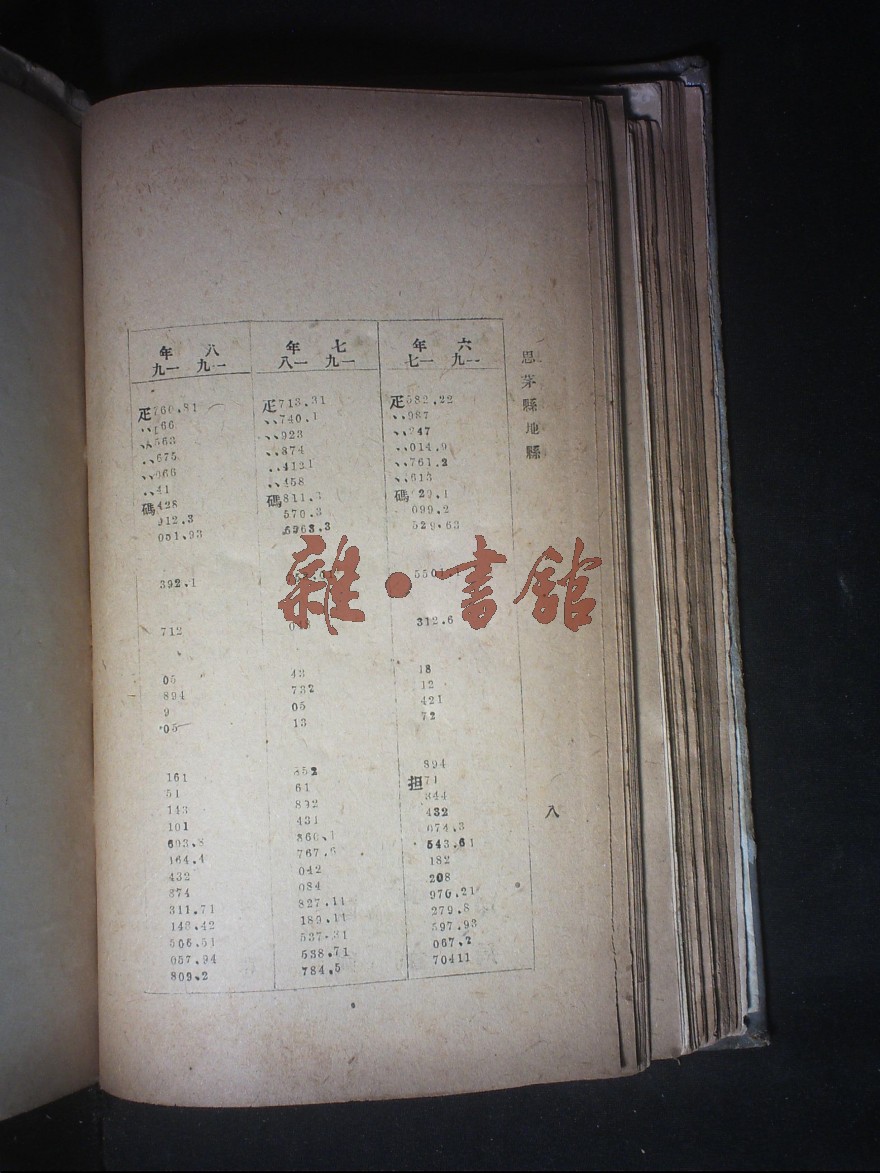 思茅縣地縣
八
六年
一九一七
七年
一九一八
八年
一九一九
疋582.22 疋713.31 疋760.81
〃987 〃740.1
〃247 〃923 〃563
〃014.9 〃874 〃675
〃761.2 〃412.1 〃966
〃613 〃458 〃41
碼811.3 碼428
099.2 570.3 912.3
529.63 051.93
392.1
312.6 712
18 43 05
12 732 894
421 05 9
72 13 05
894 852 161
担71 61 51
344 892 143
432 431 101
074.3 360.1 603.8
543.61 767.6 164.4
182 042 432
208 084 874
976.21 827.11 311.71
279.8 189.11 149.42
597.93 537.31
067.2 538.71 057.94
70411 784.5 809.2
雜·書館